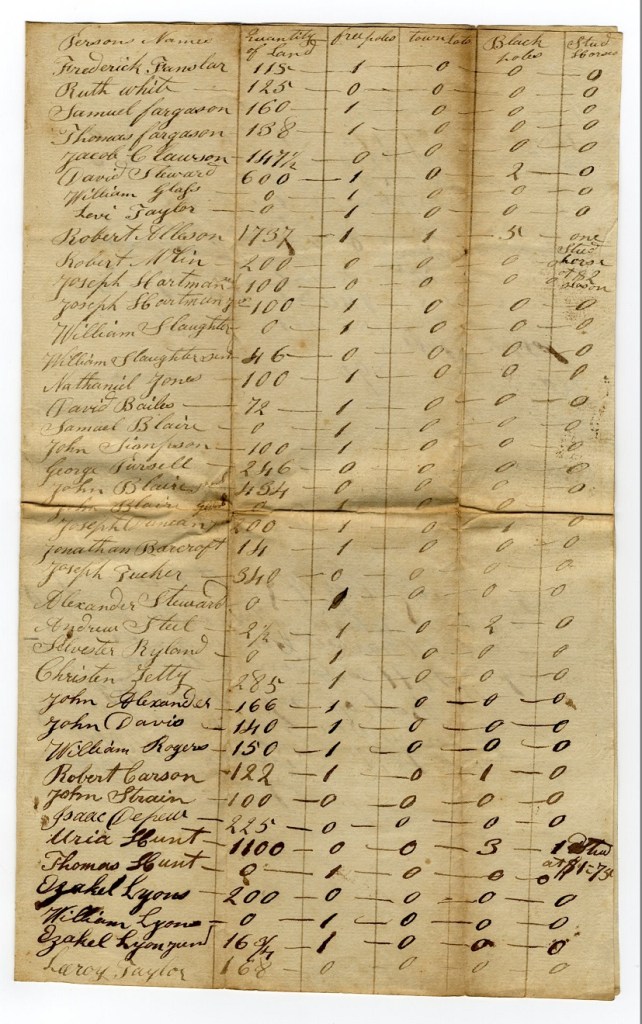 Persons Names Quantity of land free poles town lots Black poles Stud Horses
Frederick Fanslar 115 1 0 0 0
Ruth White 125 0 0 0 0
Samuel fargason 160 1 0 0 0
Thomas fargason 138 1 0 0 0
Jacob Clawson 147½ 0 0 0 0
David Steward 600 1 0 2 0
William Glass 0 1 0 0 0
Levi Taylor 0 1 0 0 0
Robert Allison 1737 1 1 5 one Stud horse at $2 season
Robert 200 0 0 0 0
Joseph Hartman 100 0 0 0
Joseph Hartman 100 1 0 0 0
William Slaughter 0 1 0 0 0
William Slaughter 46 0 0 0
Nathaniel Jones 100 1 0 0 0
David Bailes 72 1 0 0 0
Samuel Blair 0 1 0 0 0
John Simpson 100 1 0 0 0
George Pursell 246 0 0 0 0
John Blair 434 0 0 0 0
John Blair 0 1 0 0
Joseph Duncan 200 1 0 1 0
Jonathan Barcroft 14 1 0 0 0
Joseph Tucker 340 0 0 0 0
Alexander Steward 0 0 0 0
Andrew Steel 2½ 1 0 2 0
Silvester Ryland 0 1 0 0 0
Christen Zetty 285 1 0 0 0
John Alexander 166 1 0 0 0
John Davis 140 1 0 0 0
William Rogers 150 1 0 0 0
Robert Carson 122 1 0 1 0
John Strain 100 0 0 0 0
Isaac Depew 225 0 0 0 0
Uria Hunt 1100 0 0 3 1 Stud at $1-75
Thomas Hunt 0 1 0 0 0
Ezakel Lyons 200 0 0 0 0
William Lyons 0 1 0 0 0
Ezakel Lyons jund 16¾ 1 0 0 0
Leroy Taylor 168 0 0 0 0